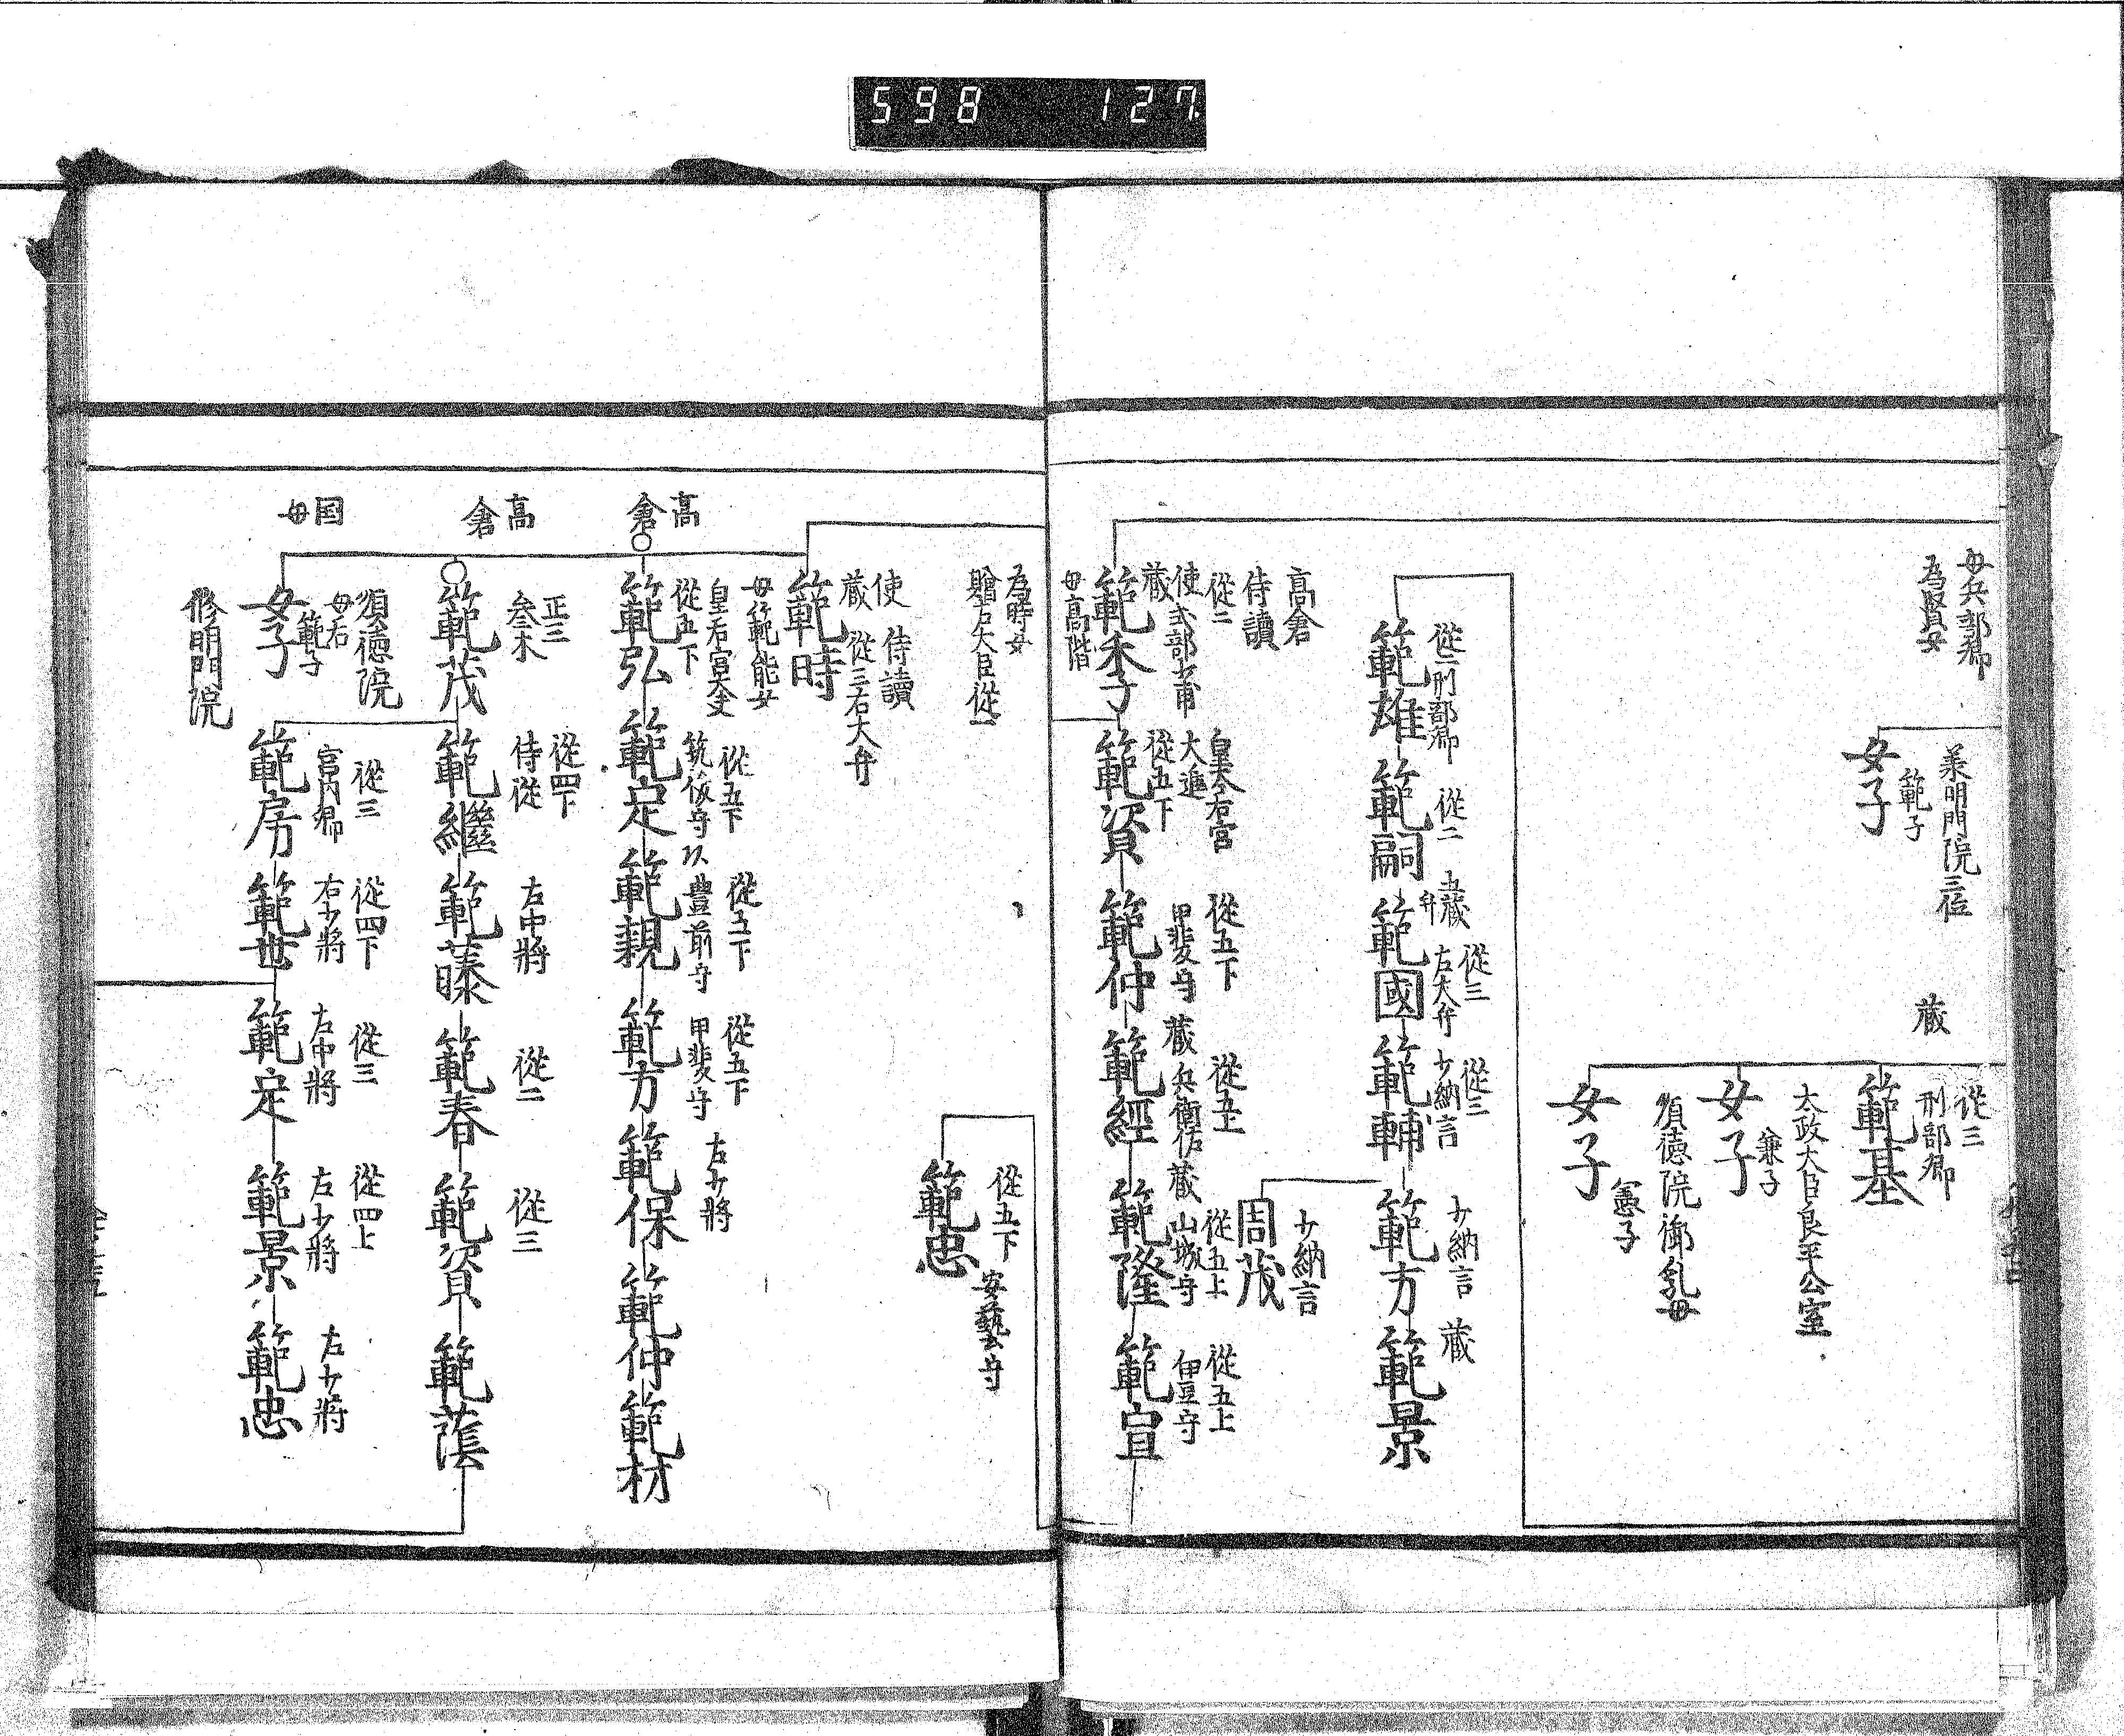 598 127
母兵部卿
為賢女
美明門院三位
範子
女子
蔵
従三
刑部卿
範基
太政大臣良平公室
兼子
女子
順徳院御乳母
憲子
女子
従二刑部卿
範雄
従二
範嗣
五蔵
弁
従三
左大弁
範國
従三
少納言
範輔
少納言
範方
蔵
範景
少納言
周茂
高倉
侍讀
従二
使式部少甫
蔵
範季子
母高階
為時女
贈左大臣従一
皇太后宮
大進
従五下
範資
従五下
甲斐守
範仲
蔵
従五上
兵衛佐
範經
蔵
従五上
山城守
範隆
従五上
伊豆守
範宣
従五下
安藝守
範忠
使 侍讀
蔵 従三右大弁
範時
母範能女
皇后宮大夫
従五下
高倉
範弘
従五下
筑後守
範定
以
従五下
豊前守
範親
従五下
甲斐守
範方
左少将
範保
範仲
範材
高倉
正三
叅木
範茂
従四下
侍従
範繼
左中将
範藤
従二
範春
従三
範資
範蔭
国母
順徳院
母后
範子
女子
修明門院
従三
宮内卿
範房
従四下
右少将
範世
従三
左中将
範定
従四上
左少将
範景
左少将
範忠